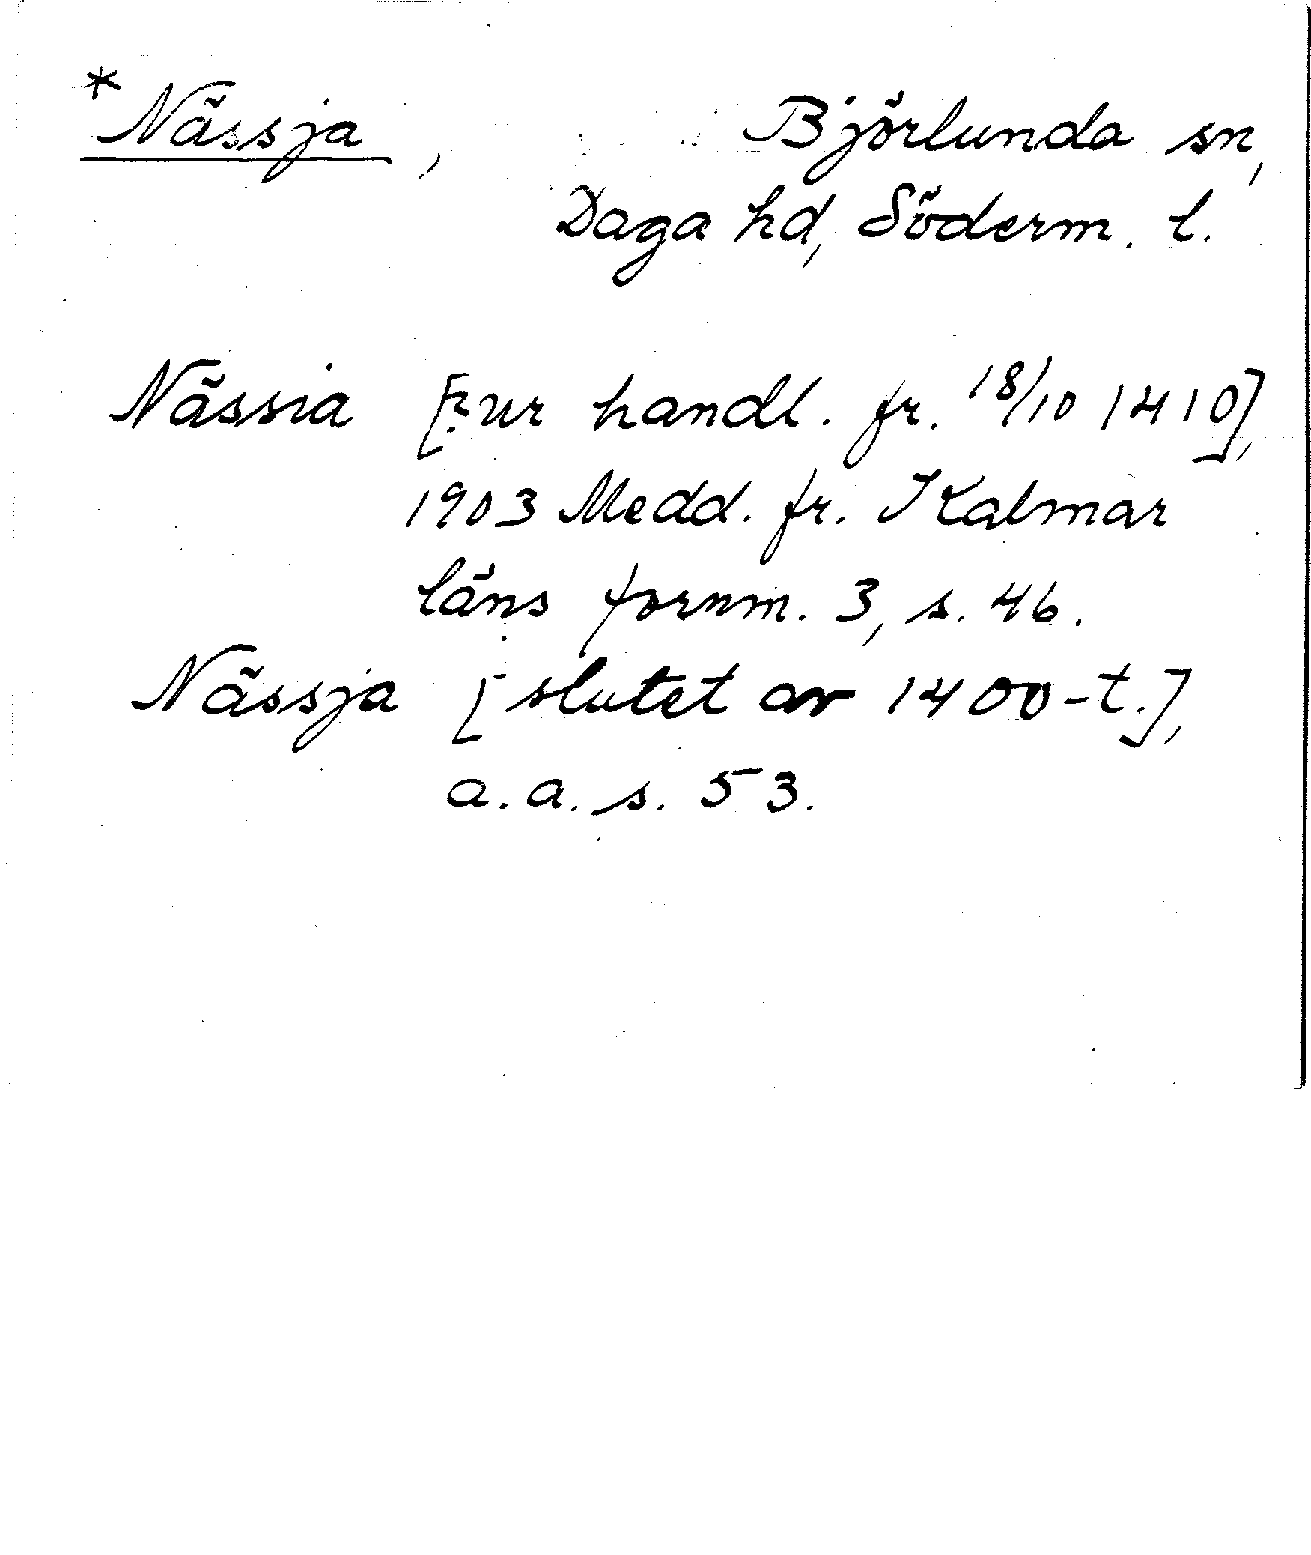 *Nässja, Björlunda sn,
Daga hd, Söderm. l.
Nässia [? ur handl. fr. 18/10 1410],
1903 Medd. fr. Kalmar
läns fornm. 3, s. 46.
Nässja [slutet av 1400-t.],
a.a. s. 53.